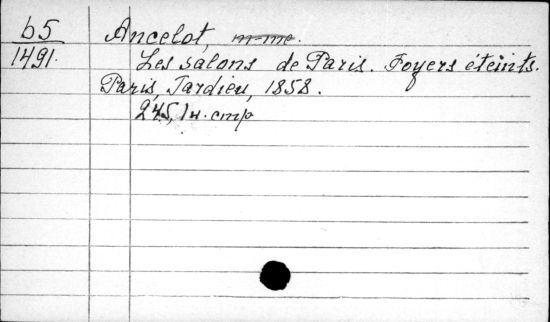 b5
1491.
Ancelot, m-me.
Les salons de Paris. Foyers éteints.
Paris, Tardieu, 1858.
245, 1 н. стр